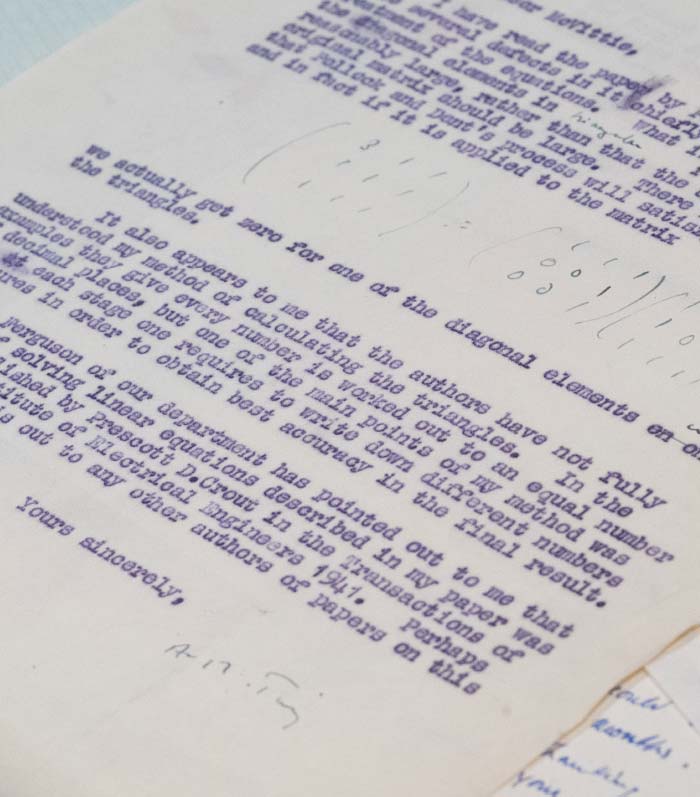 McVittie,
I have read the paper by
several defects in it chiefly
of the equations. What
the diagonal elements in triangular
reasonably large, rather than that the
original matrix should be large. There
that Pollock and Dent's process will
and in fact if it is applied to the matrix
we actually get zero for one of the diagonal elements on
the triangles.
It also appears to me that the authors have not fully
understood my method of calculating the triangles. In the
examples they give every number is worked out to an equal number
decimal places, but one of the main points of my method was
at each stage one requires to write down different numbers
in order to obtain best accuracy in the final result.
Ferguson of our department has pointed out to me that
solving linear equations described in my paper was
by Prescott D.Crout in the Transactions of
of Electrical Engineers 1941. Perhaps
out to any other authors of papers on this
Yours sincerely,
could
months.
you